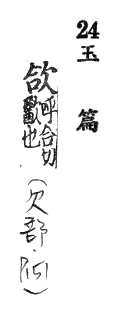 24玉篇
欱呼合切歠也(欠部·151)